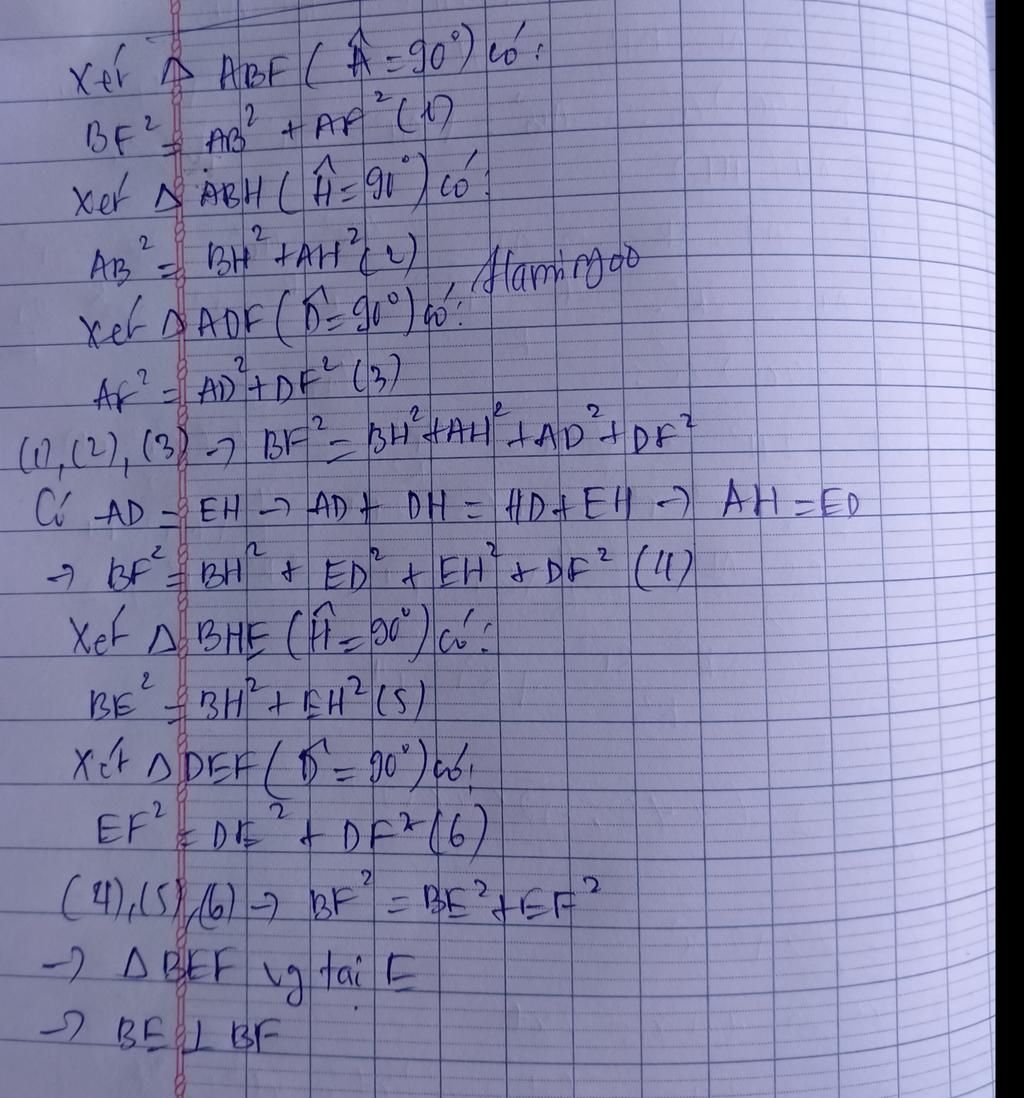 Xét Δ ABF ( Â = 90°) có:
BF² = AB² + AF² (1)
Xét Δ ABH ( Ĥ = 90°) có:
AB² = BH² + AH² (2)
Hamingoo
Xét Δ ADF ( D̂ = 90°) có:
AF² = AD² + DF² (3)
(1), (2), (3) → BF² = BH² + AH² + AD² + DF²
Có AD = EH → AD + DH = HD + EH → AH = ED
→ BF² = BH² + ED² + EH² + DF² (4)
Xét Δ BHE ( Ĥ = 90°) có:
BE² = BH² + EH² (5)
Xét Δ DEF ( D̂ = 90°) có:
EF² = DE² + DF² (6)
(4), (5), (6) → BF² = BE² + EF²
→ Δ BEF vg tại E
→ BE ⊥ BF